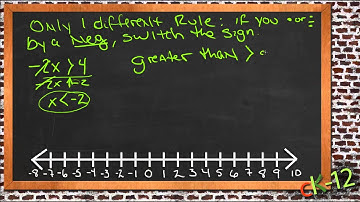 Only 1 different Rule: if you · or ÷
by a Neg, switch the sign.
-2x > 4
greater than >
÷-2x ÷-2
x < -2
-8 -7 -6 -5 -4 -3 -2 -1 0 1 2 3 4 5 6 7 8 9 10
cK-12